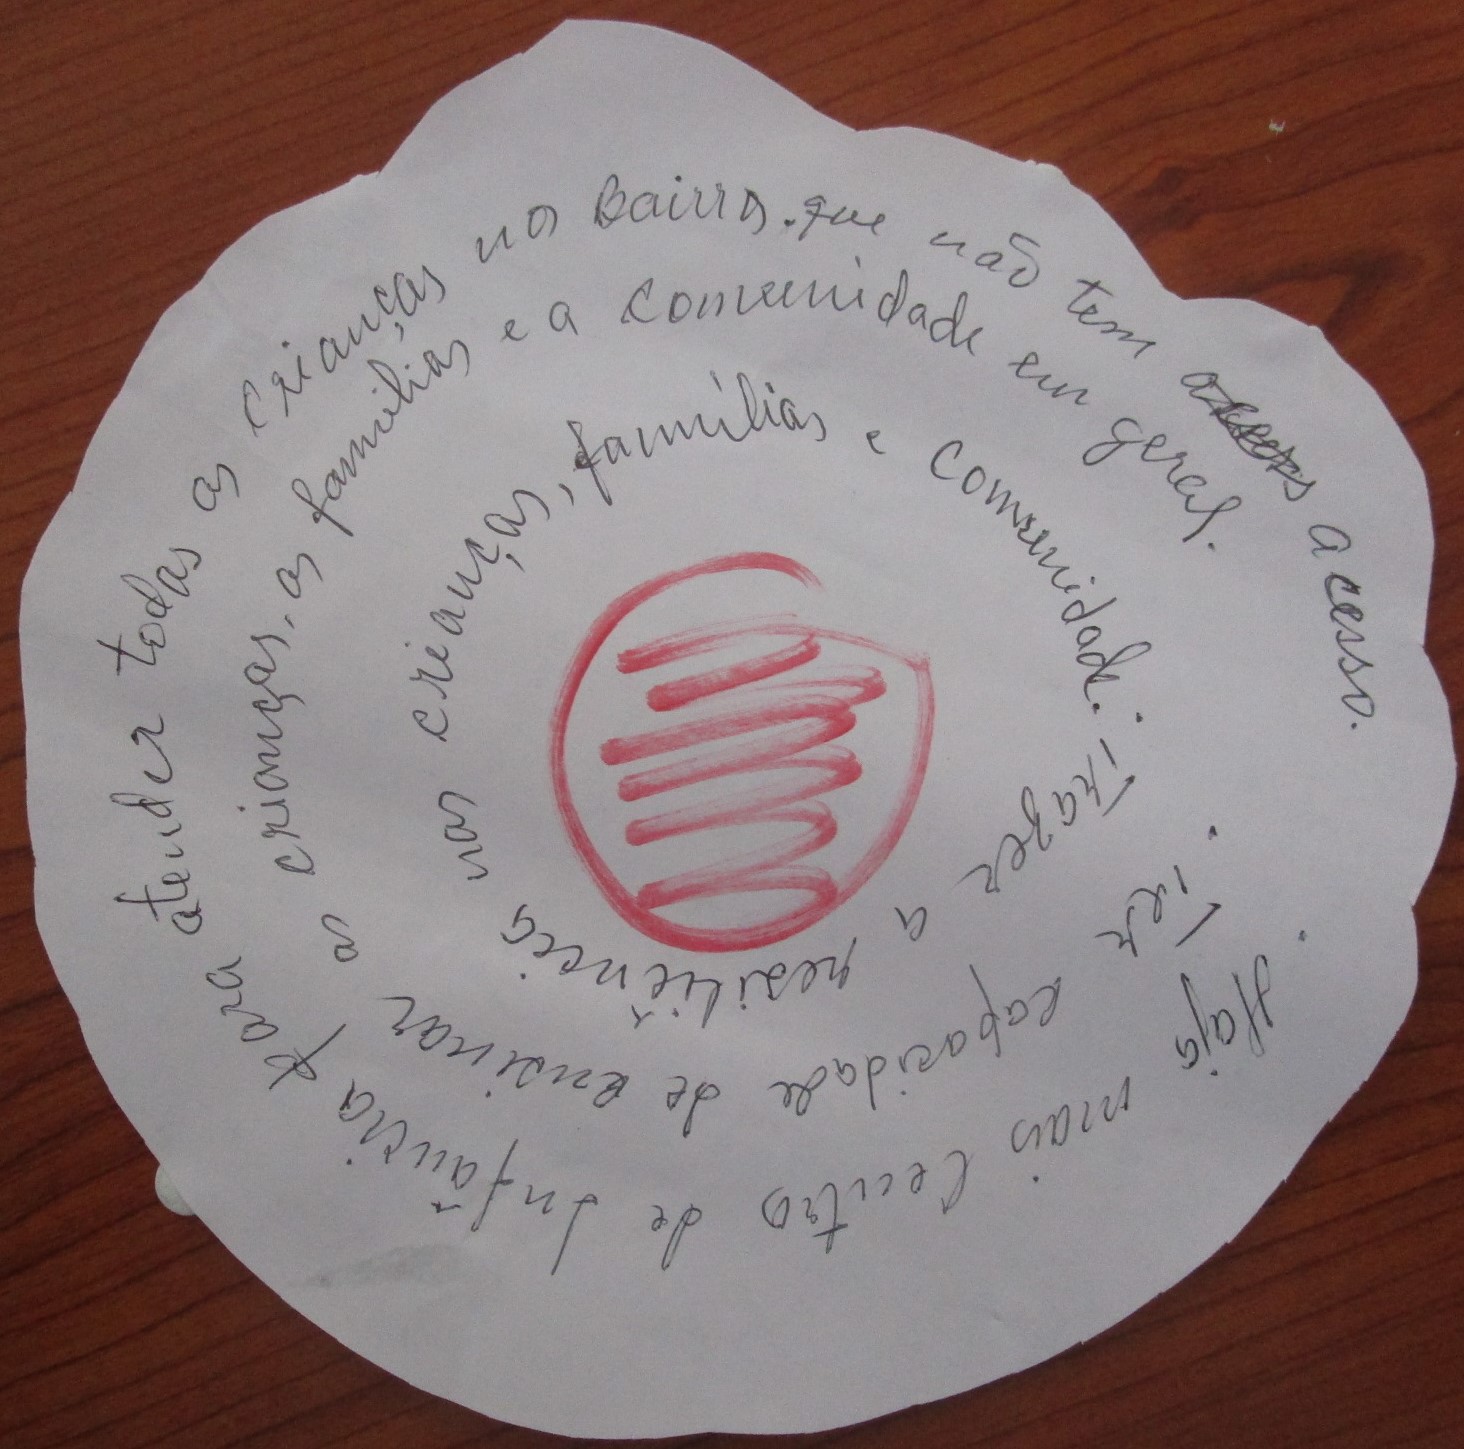 . Haja mais Centro de Infância para atender todas as crianças no Bairro. que não tem acesso.
. Ter capacidade de ensinar as crianças, as famílias e a comunidade em geral.
. Trazer a resiliência nas crianças, famílias e comunidade.